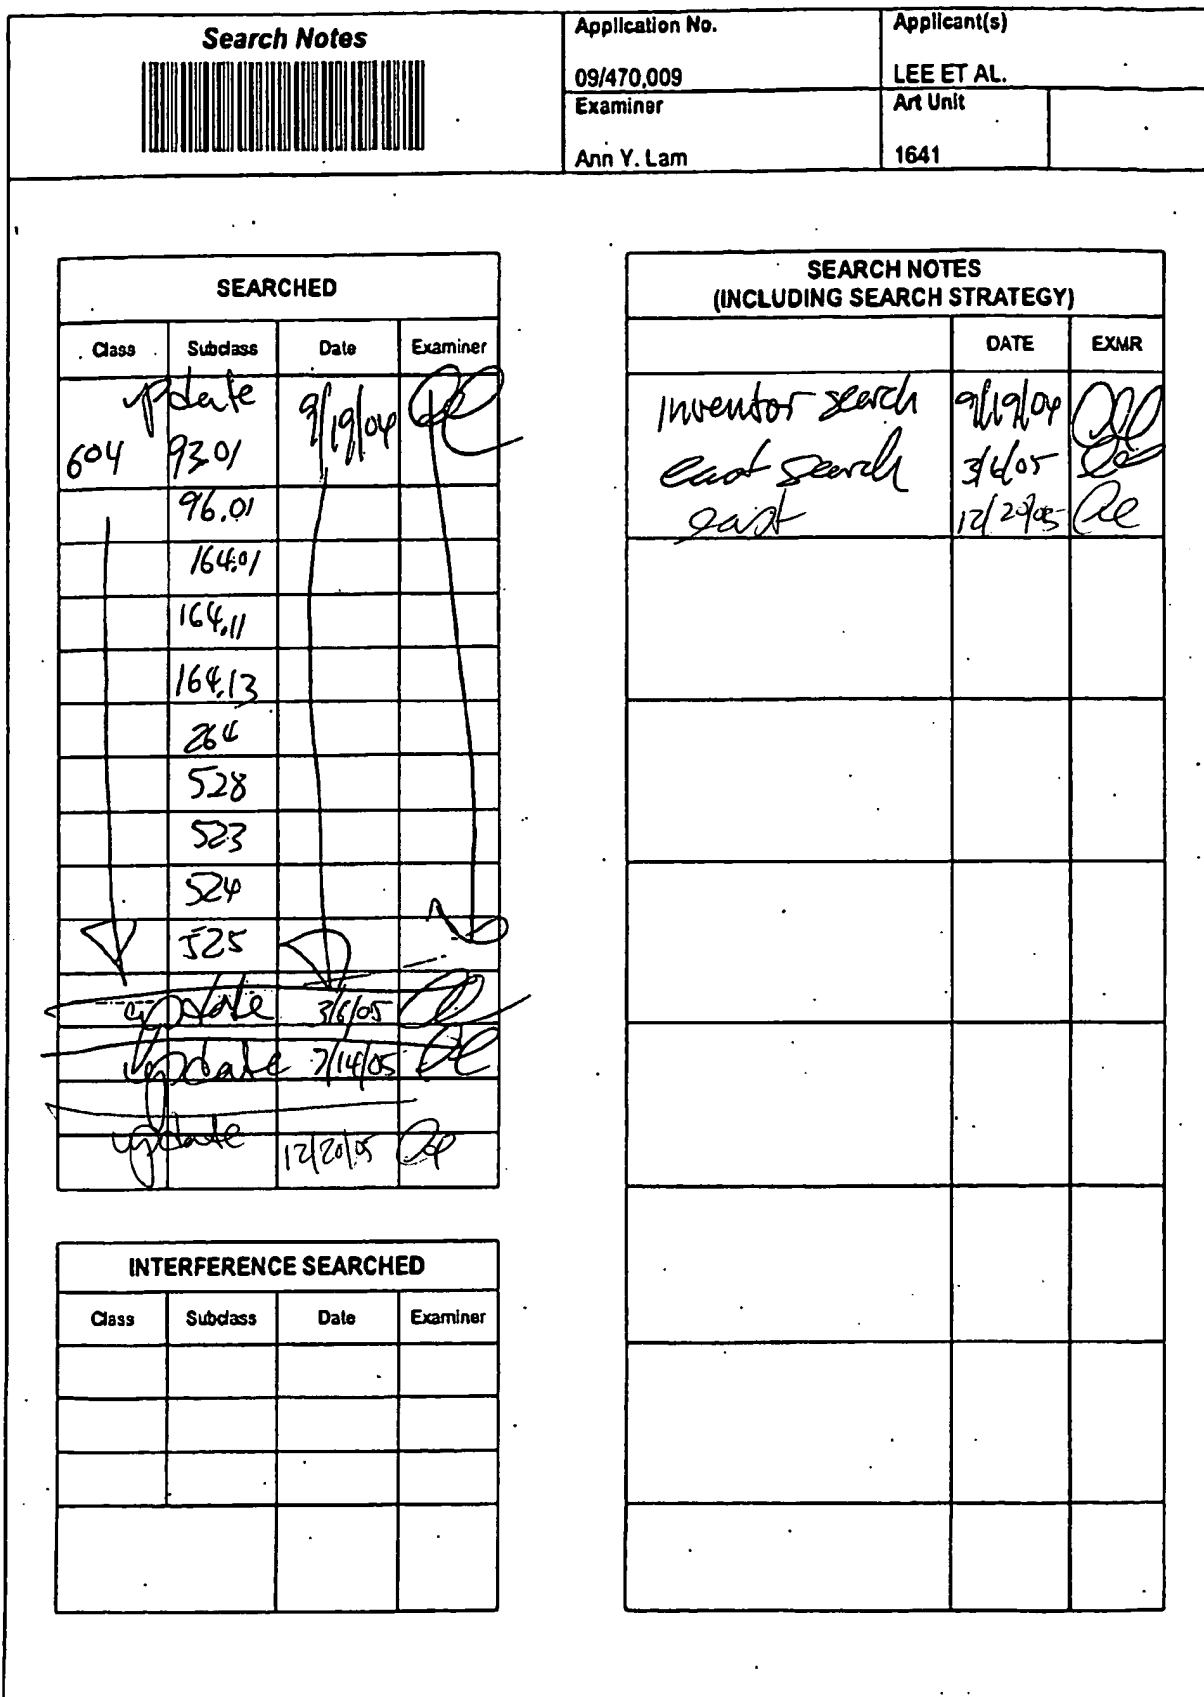 Search Notes
Application No.
09/470,009
Applicant(s)
LEE ET AL.
Examiner
Ann Y. Lam
Art Unit
1641
SEARCHED
Class Subclass Date Examiner
update 9/19/04
604 93.01
96.01
164.01
164.11
164.13
264
528
523
524
525
update 3/6/05
update 7/14/05
update 12/20/05
INTERFERENCE SEARCHED
Class Subclass Date Examiner
SEARCH NOTES
(INCLUDING SEARCH STRATEGY)
DATE EXMR
inventor search 9/19/04
east search 3/6/05
east 12/20/05